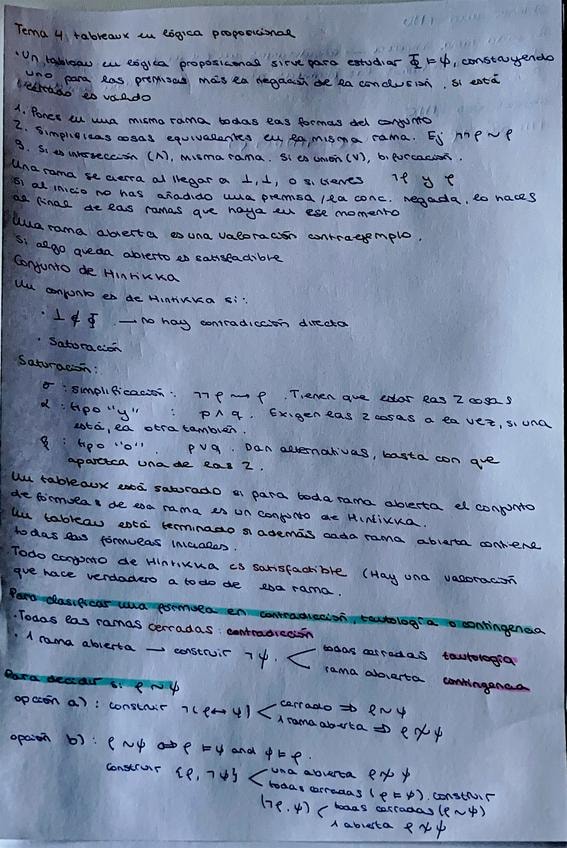 Tema 4, tableaux en lógica proposicional
· Un tableau en lógica proposicional sirve para estudiar Φ ⊨ ψ, construyendo
uno para las premisas más la negación de la conclusión. Si está
cerrado es válido
1. Pones en una misma rama todas las formas del conjunto
2. Simplificas cosas equivalentes en la misma rama. Ej ¬¬φ ~ φ
3. Si es intersección (∧), misma rama. Si es unión (∨), bifurcación.
Una rama se cierra al llegar a ⊥, ⊥, o si tienes ¬φ y φ
Si al inicio no has añadido una premisa / la conc. negada, lo haces
al final de las ramas que haya en ese momento
Una rama abierta es una valoración contraejemplo.
Si algo queda abierto es satisfacible
Conjunto de Hintikka
Un conjunto es de Hintikka si:
· ⊥ ∉ Φ → no hay contradicción directa
· Saturación
Saturación:
σ : simplificación: ¬¬φ ⟿ φ. Tienen que estar las 2 cosas
α : tipo "y" : p ∧ q. Exigen las 2 cosas a la vez, si una
está, la otra también.
β : tipo "o". p ∨ q. Dan alternativas, basta con que
aparezca una de las 2.
Un tableaux está saturado si para toda rama abierta el conjunto
de fórmulas de esa rama es un conjunto de Hintikka.
Un tableau está terminado si además cada rama abierta contiene
todas las fórmulas iniciales.
Todo conjunto de Hintikka es satisfactible (Hay una valoración
que hace verdadero a todo de esa rama.
Para clasificar una fórmula en contradicción, tautología o contingencia
· Todas las ramas cerradas: contradicción
· 1 rama abierta → construir ¬ψ. < todas cerradas tautología
rama abierta contingencia
Para decidir si φ ~ ψ
opción a) : construir ¬(φ ↔ ψ) < cerrado ⇒ φ ~ ψ
1 rama abierta ⇒ φ ≁ ψ
opción b) : φ ~ ψ ⇔ φ ⊨ ψ and ψ ⊨ φ.
construir {φ, ¬ψ} < una abierta φ ≁ ψ
todas cerradas (φ ⊨ ψ). construir
(¬φ, ψ) < todas cerradas (φ ~ ψ)
1 abierta φ ≁ ψ